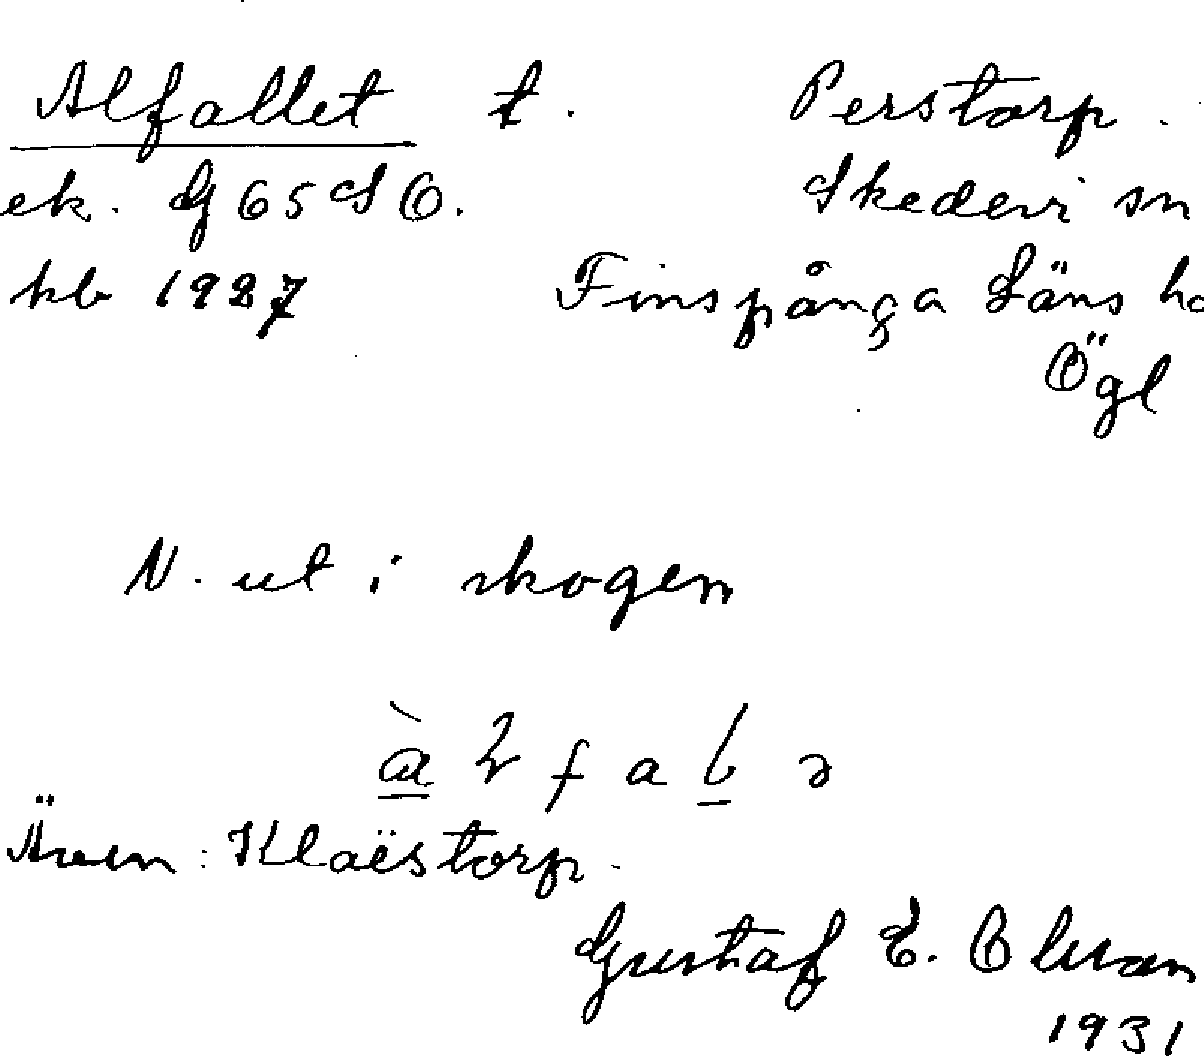 Alfallet t. Perstorp.
ek. G 65 S Ö. Skedevi sn
kb 1927 Finspånga Läns hd
Ögl
N. ut i skogen
Även: Klaëstorp.
Gustaf E. Olsson
1931